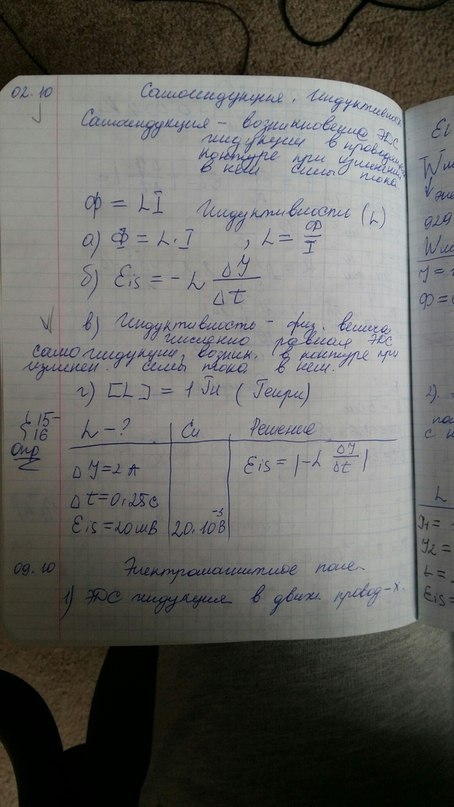 02.10 Самоиндукция. Индуктивность
Самоиндукция - возникновение ЭДС
индукции в проводящем
контуре при изменении
в нем силы тока
Ф = LI Индуктивность (L)
а) Ф = L·I , L = Ф/I
б) Eis = -L ΔY/Δt
в) Индуктивность - физ. велич
численно равная ЭДС
самоиндукции, возник. в контуре при
изменен. силы тока в нем.
г) [L] = 1 Гн (Генри)
§ 15-16
Опр
L - ? Си Решение
ΔY = 2 А Eis = |-L ΔY/Δt|
Δt = 0,25с
Eis = 20мВ 20·10⁻³В
09.10 Электромагнитное поле
1) ЭДС индукция в движ. провод-х.
Ei
Wм
929
Wм
Y =
Ф =
2).
с н
L
Y1 =
Y2 =
L =
Eis =